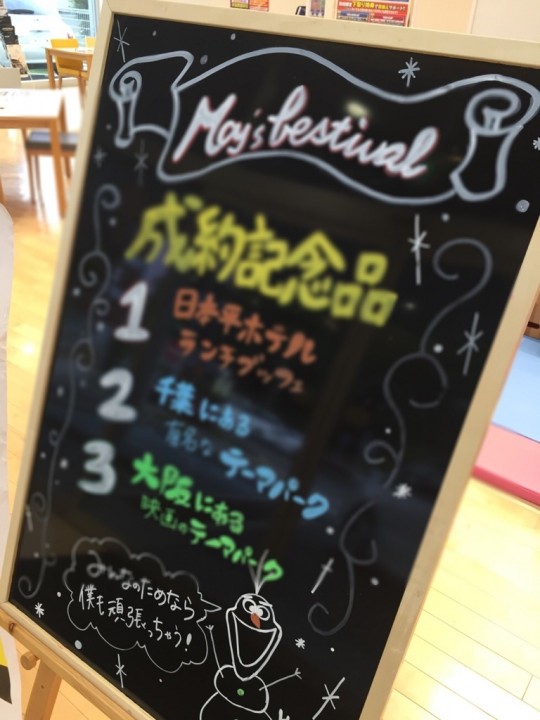 May's bestival
成約記念品
1 日本平ホテル
ランチブッフェ
2 千葉にある
有名なテーマパーク
3 大阪にある
映画のテーマパーク
みんなのためなら
僕も頑張っちゃう!